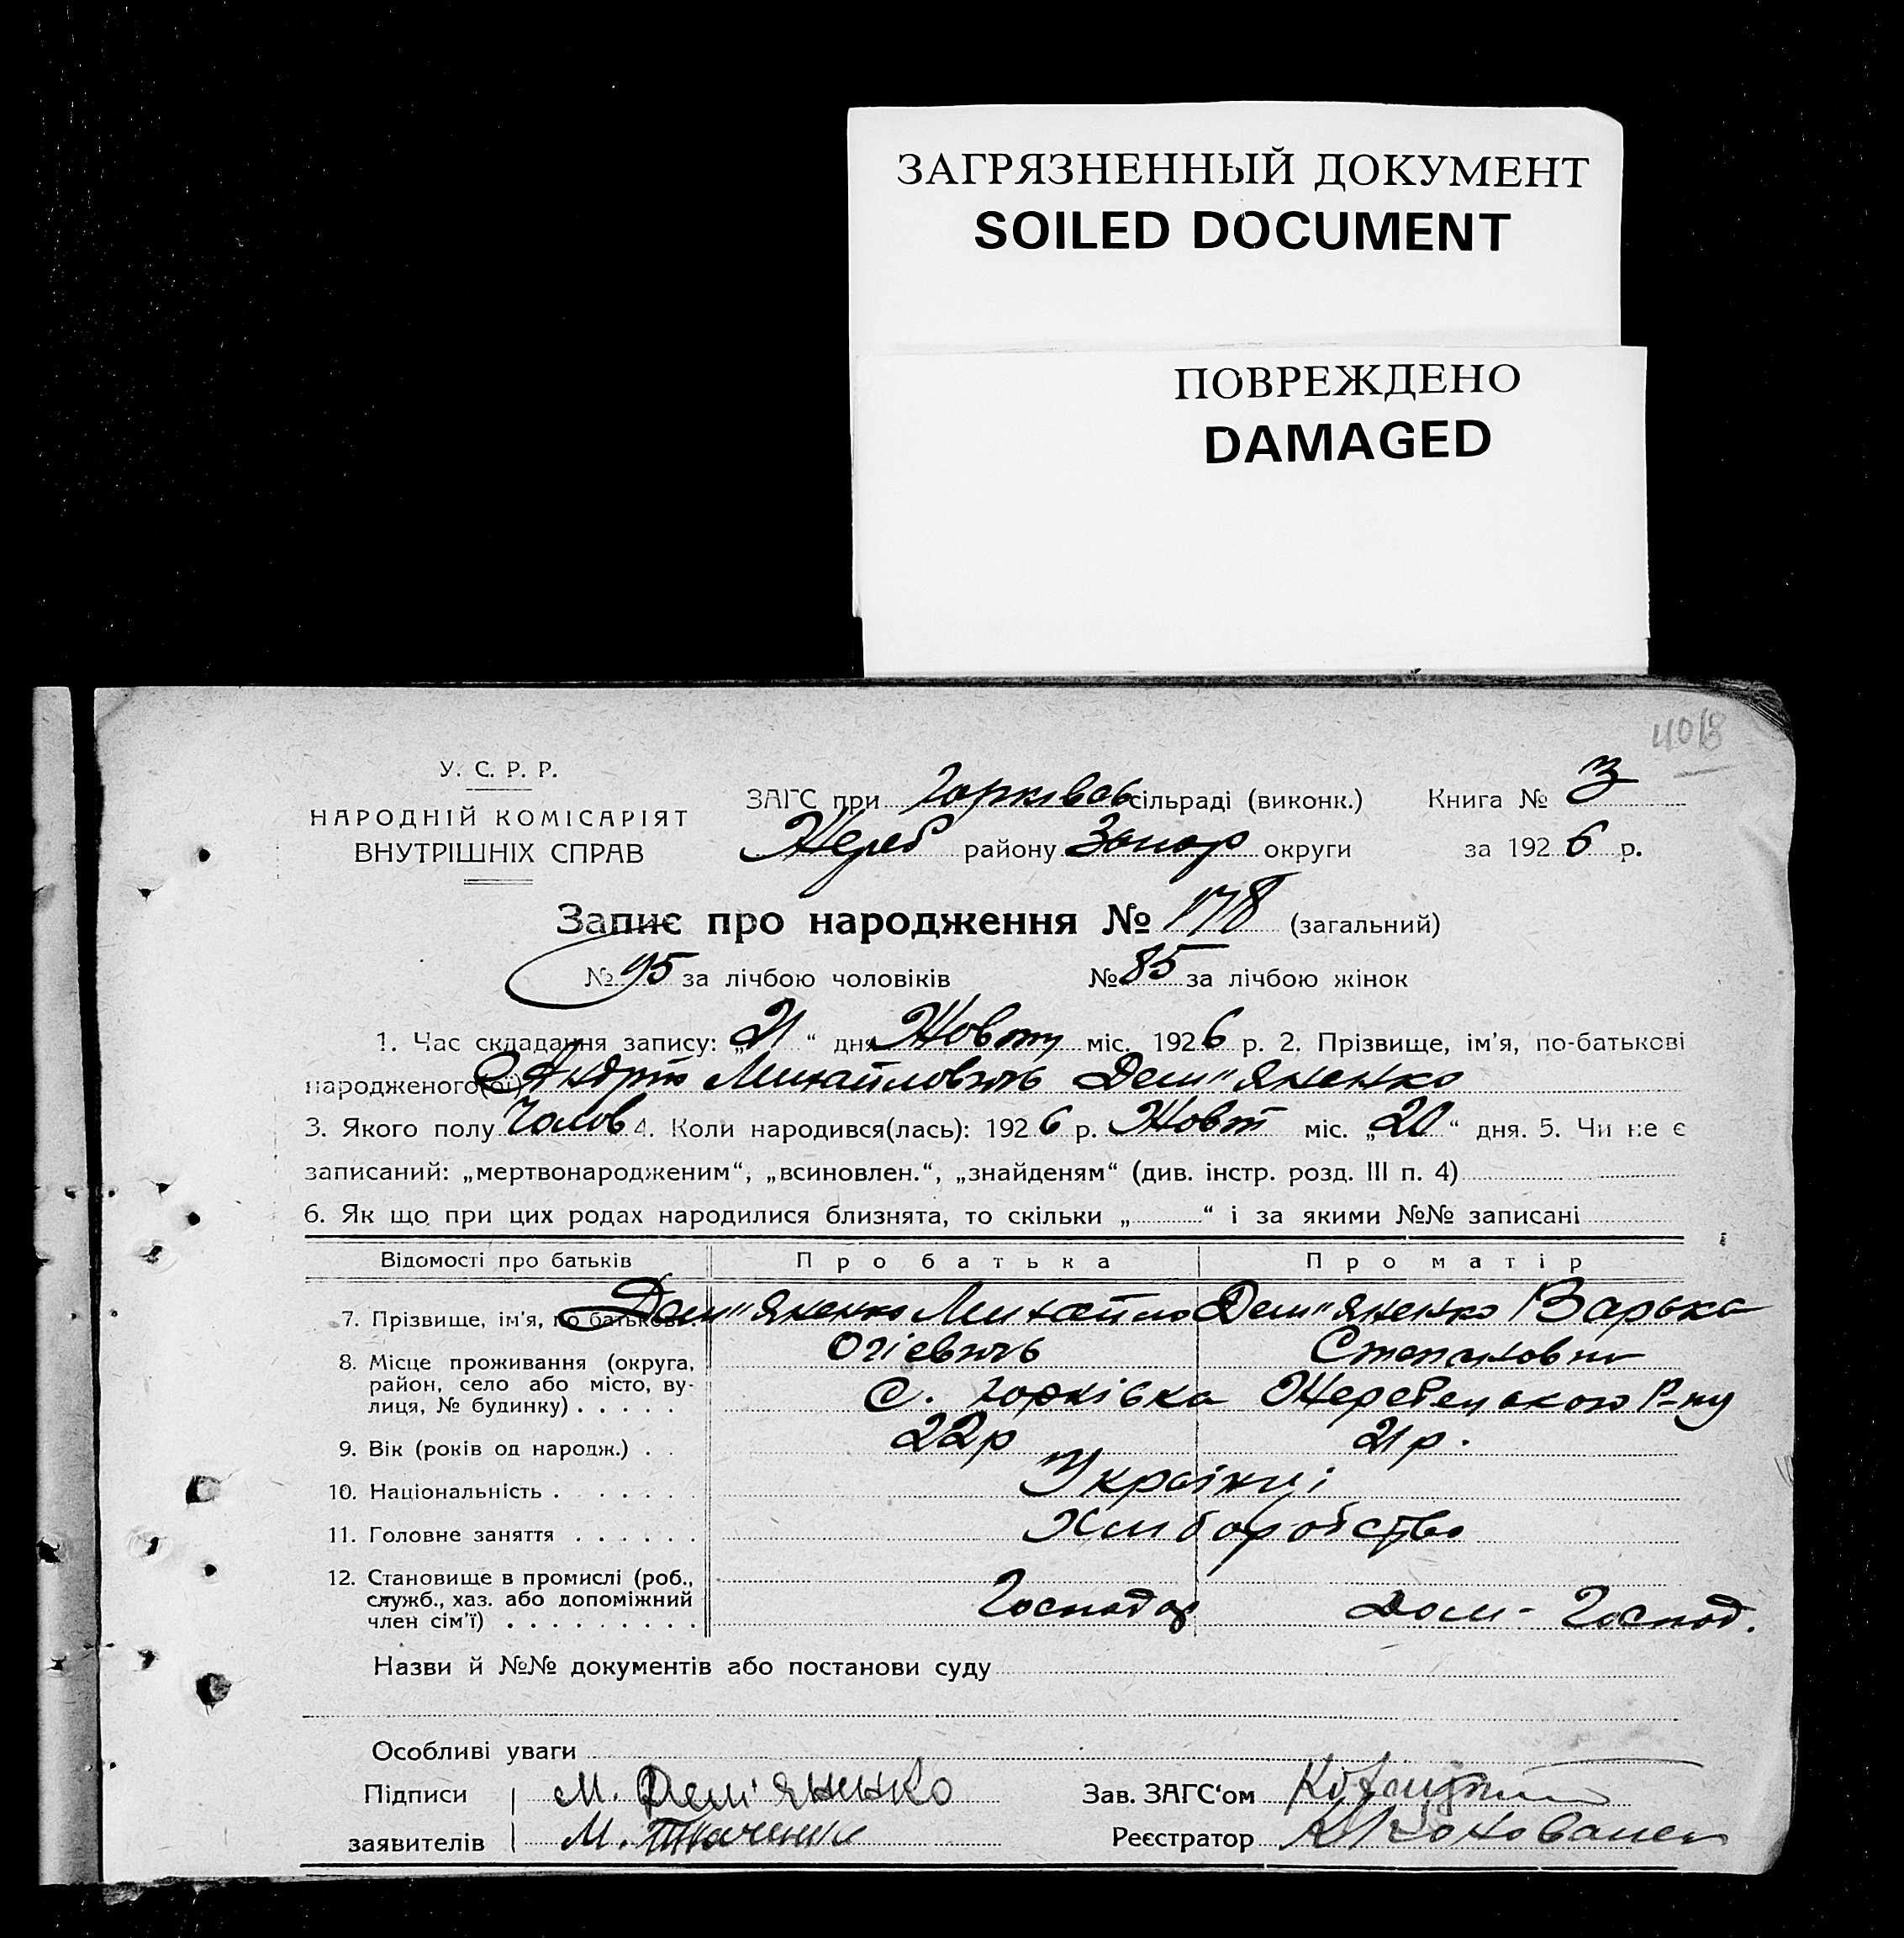 ЗАГРЯЗНЕННЫЙ ДОКУМЕНТ
SOILED DOCUMENT
ПОВРЕЖДЕНО
DAMAGED
4018
У. С. Р. Р.
НАРОДНІЙ КОМІСАРІЯТ
ВНУТРІШНІХ СПРАВ
ЗАГС при сільраді (виконк.) Книга № 3
Жереб району Запор округи за 1926 р.
Запис про народження № 178 (загальний)
№ 95 за лічбою чоловіків № 85 за лічбою жінок
1. Час складання запису: „21“ дня Жовт міс. 1926 р. 2. Прізвище, ім'я, по-батькові
народженого(ої) Андрій Михайловичь Дем"яненко
3. Якого полу Чолов 4. Коли народився(лась): 1926 р. Жовт міс. „20“ дня. 5. Чи не є
записаний: „мертвонародженим“, „всиновлен.“, „знайденям“ (див. інстр. розд. III п. 4)
6. Як що при цих родах народилися близнята, то скільки „ “ і за якими №№ записані
Відомості про батьків Про батька Про матір
7. Прізвище, ім'я, по батькові Дем"яненко Михайло Дем"яненко Варька
Степановна
8. Місце проживання (округа,
район, село або місто, ву-
лиця, № будинку) . . . . . с. Юрківка Жеребецького Р-ну
9. Вік (років од народж.) . 22р 21р.
10. Національність . . . . . . . Українці
11. Головне заняття . . . . . . Хліборобство
12. Становище в промислі (роб.,
служб., хаз. або допоміжний
член сім'ї) . . . . . . . . . Господар Дом-Господ.
Назви й №№ документів або постанови суду
Особливі уваги
Підписи М. Дем'яненко Зав. ЗАГС'ом
заявителів М. Ткаченко Реєстратор